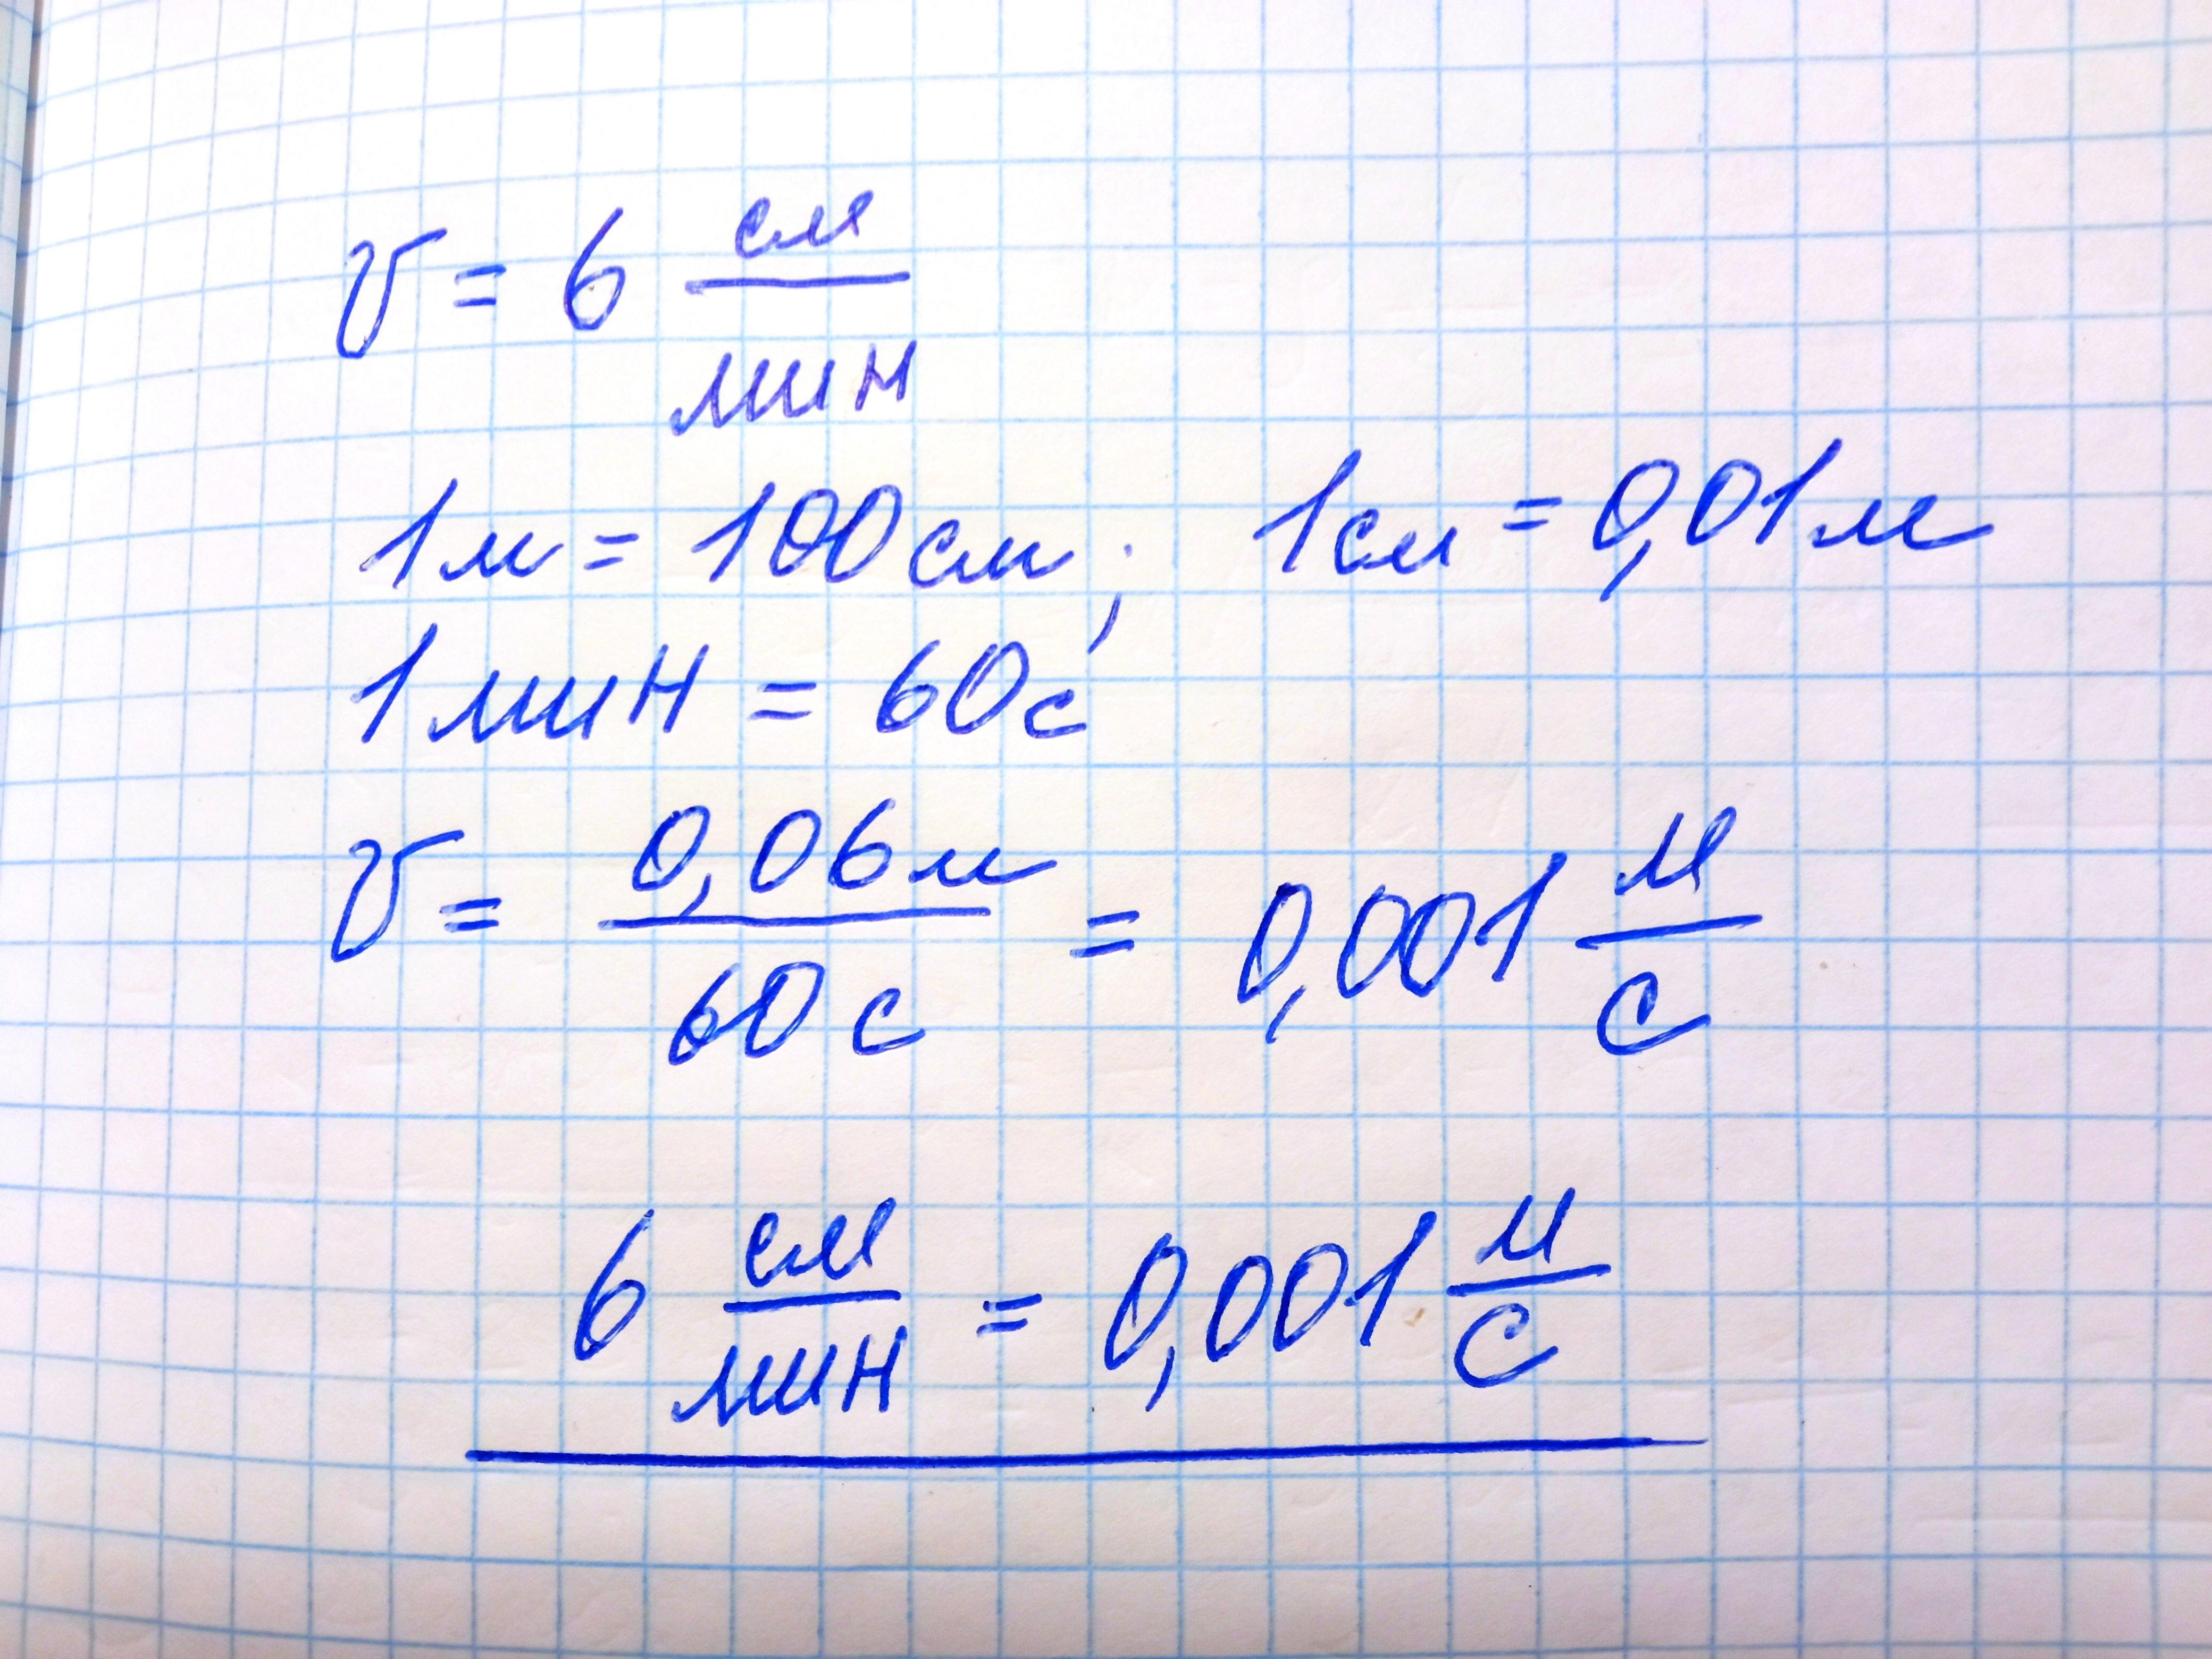 v = 6 см/мин
1м = 100см; 1см = 0,01м
1мин = 60с
v = 0,06м/60с = 0,001 м/с
6 см/мин = 0,001 м/с